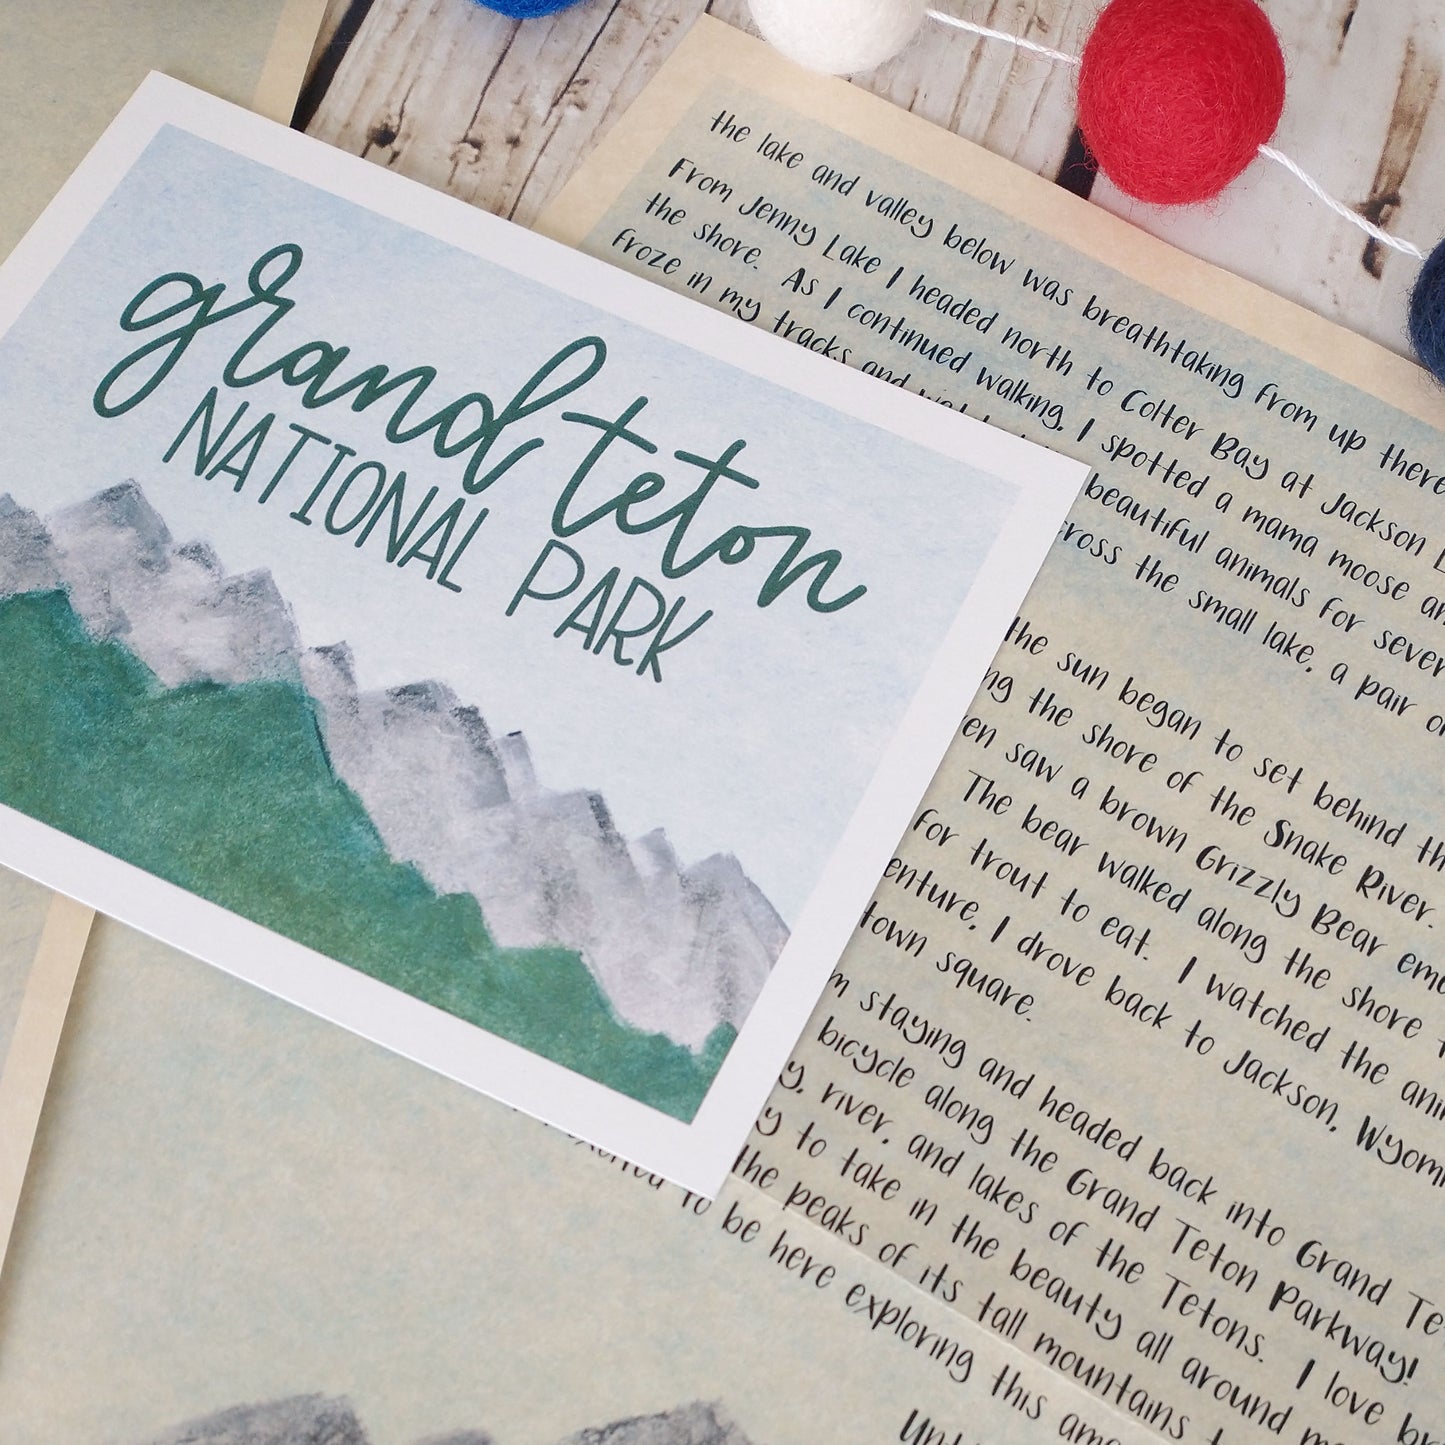 grand teton
NATIONAL PARK
the lake and valley below was breathtaking from up there
From Jenny Lake I headed north to Colter Bay at Jackson
the shore. As I continued walking, I spotted a mama moose
froze in my tracks and
beautiful animals for
the small lake, a pair
the sun began to set behind
the shore of the Snake River.
saw a brown Grizzly Bear
The bear walked along the shore
for trout to eat. I watched the
I drove back to Jackson,
town square.
staying and headed back into Grand
bicycle along the Grand Teton Parkway!
river, and lakes of the Tetons. I love
to take in the beauty all around
the peaks of its tall mountains
to be here exploring this